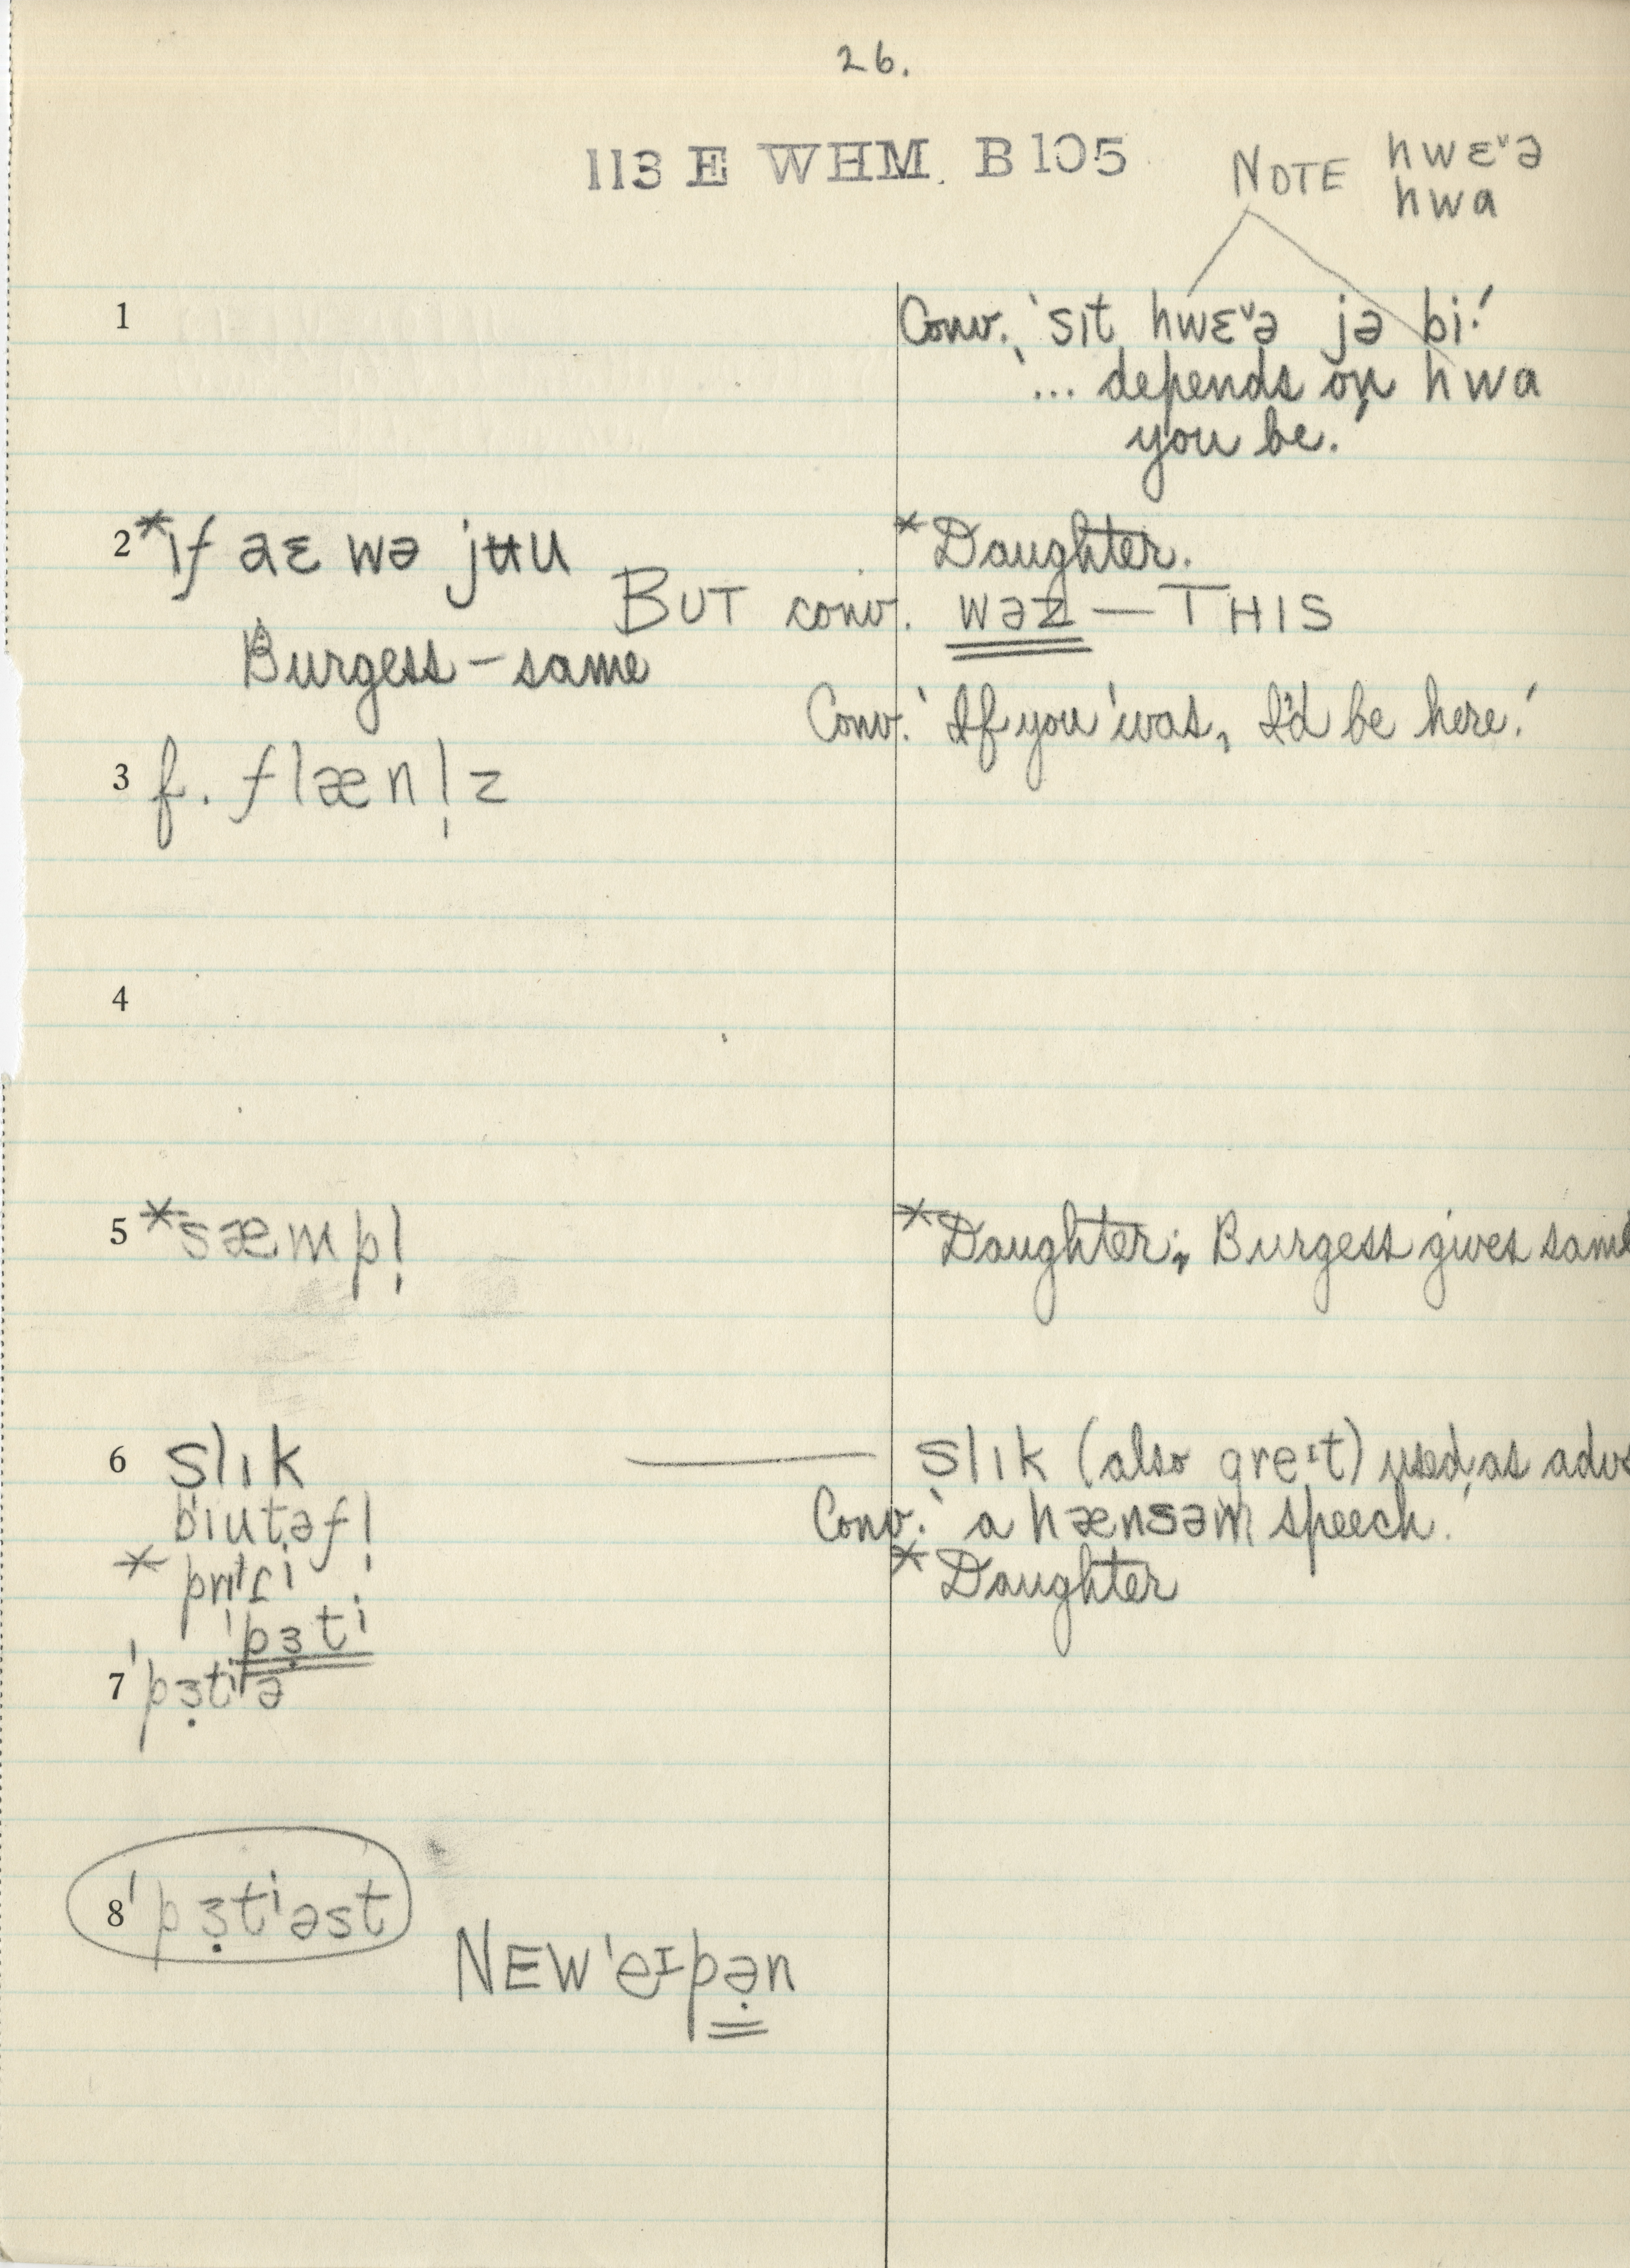 26.
113 E WHM. B105
NOTE hwɛˇə
hwa
1 Conv. 'sɪt hwɛˇə jə bi.'
'... depends on hwa
you be.'
2 *ɪf aɛ wə jʉu *Daughter.
BUT conv. wəz — THIS
Burgess – same
Conv. 'If you 'was, I'd be here.'
3 f. flæn l̩ z
4
5 *sæmpl̩ *Daughter; Burgess gives same
6 slɪk —— slɪk (also greɪt) used as adv
biutəfl̩ Conv. 'a hænsəm speech.'
* *Daughter
'pɜ̣ti
7 'pɜ̣tiə
8 'pɜ̣tiəst
NEW 'eɪpə̣n